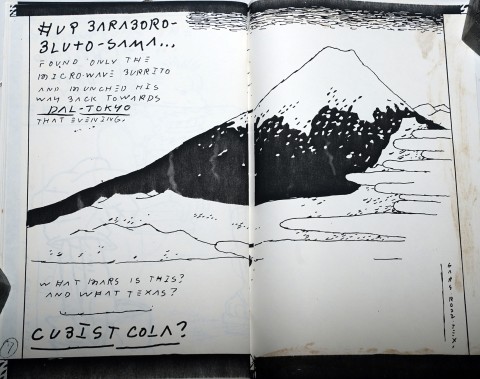 #UP BARABORO-
BLUTO-SAMA...
FOUND ONLY THE
MICRO-WAVE BURRITO
AND MUNCHED HIS
WAY BACK TOWARDS
DAL-TOKYO
THAT EVENING.
WHAT MARS IS THIS?
AND WHAT TEXAS?
CUBIST COLA?